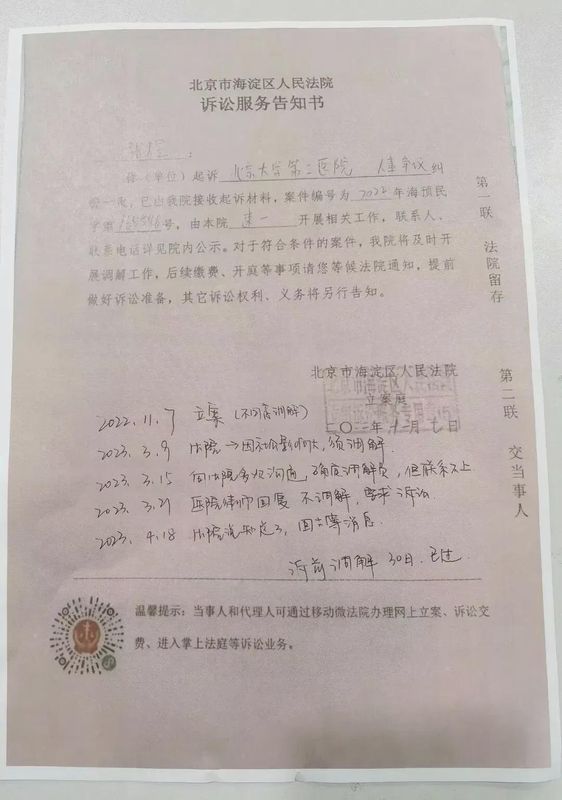 北京市海淀区人民法院
诉讼服务告知书
你（单位）起诉 北京大学第三医院 人事争议 纠
纷一案，已由我院接收起诉材料，案件编号为 2022 年海预民
字第 号，由本院 开展相关工作，联系人、
联系电话详见院内公示。对于符合条件的案件，我院将及时开
展调解工作，后续缴费、开庭等事项请您等候法院通知，提前
做好诉讼准备，其它诉讼权利、义务将另行告知。
第一联 法院留存
北京市海淀区人民法院
立案庭
二〇二二年十一月七日
第二联 交当事人
2022.11.7 立案（不同意调解）
2023.3.9 法院→因社会影响大，须调解
2023.3.15 同法院多次沟通，确定调解员，但联系不上
2023.3.21 医院律师回复 不调解，要求诉讼
2023.4.18 法院说知道了，回去等消息
诉前调解30日，已过
温馨提示：当事人和代理人可通过移动微法院办理网上立案、诉讼交
费、进入掌上法庭等诉讼业务。